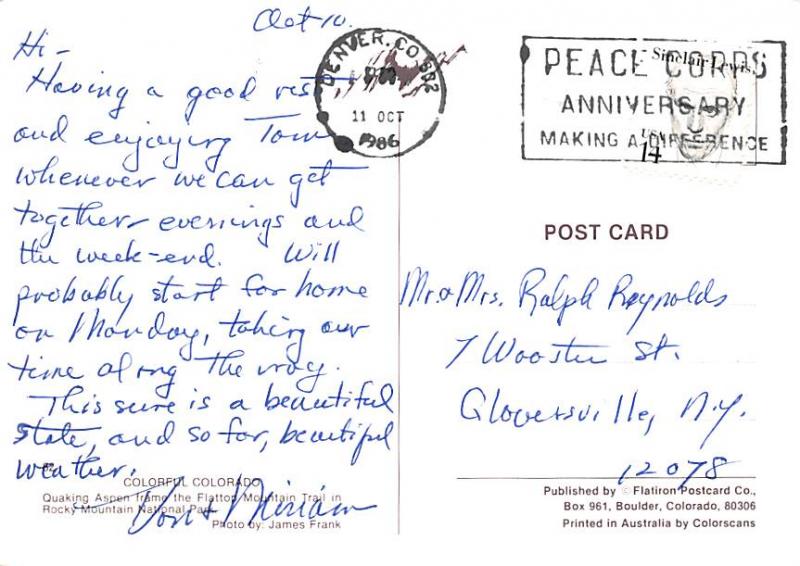 Oct 10.
Hi -
Having a good visit
and enjoying Tom
whenever we can get
together evenings and
the week-end. Will
probably start for home
on Monday, taking our
time along the way.
This sure is a beautiful
state, and so far, beautiful
weather.
Don & Miriam
COLORFUL COLORADO
Quaking Aspen frame the Flattop Mountain Trail in
Rocky Mountain National Park.
Photo by: James Frank
DENVER, CO 802
11 OCT
1986
PEACE CORPS
ANNIVERSARY
MAKING A DIFFERENCE
Sinclair Lewis
USA
14
POST CARD
Mr. & Mrs. Ralph Reynolds
7 Wooster St.
Gloversville, N.Y.
12078
Published by © Flatiron Postcard Co.,
Box 961, Boulder, Colorado, 80306
Printed in Australia by Colorscans